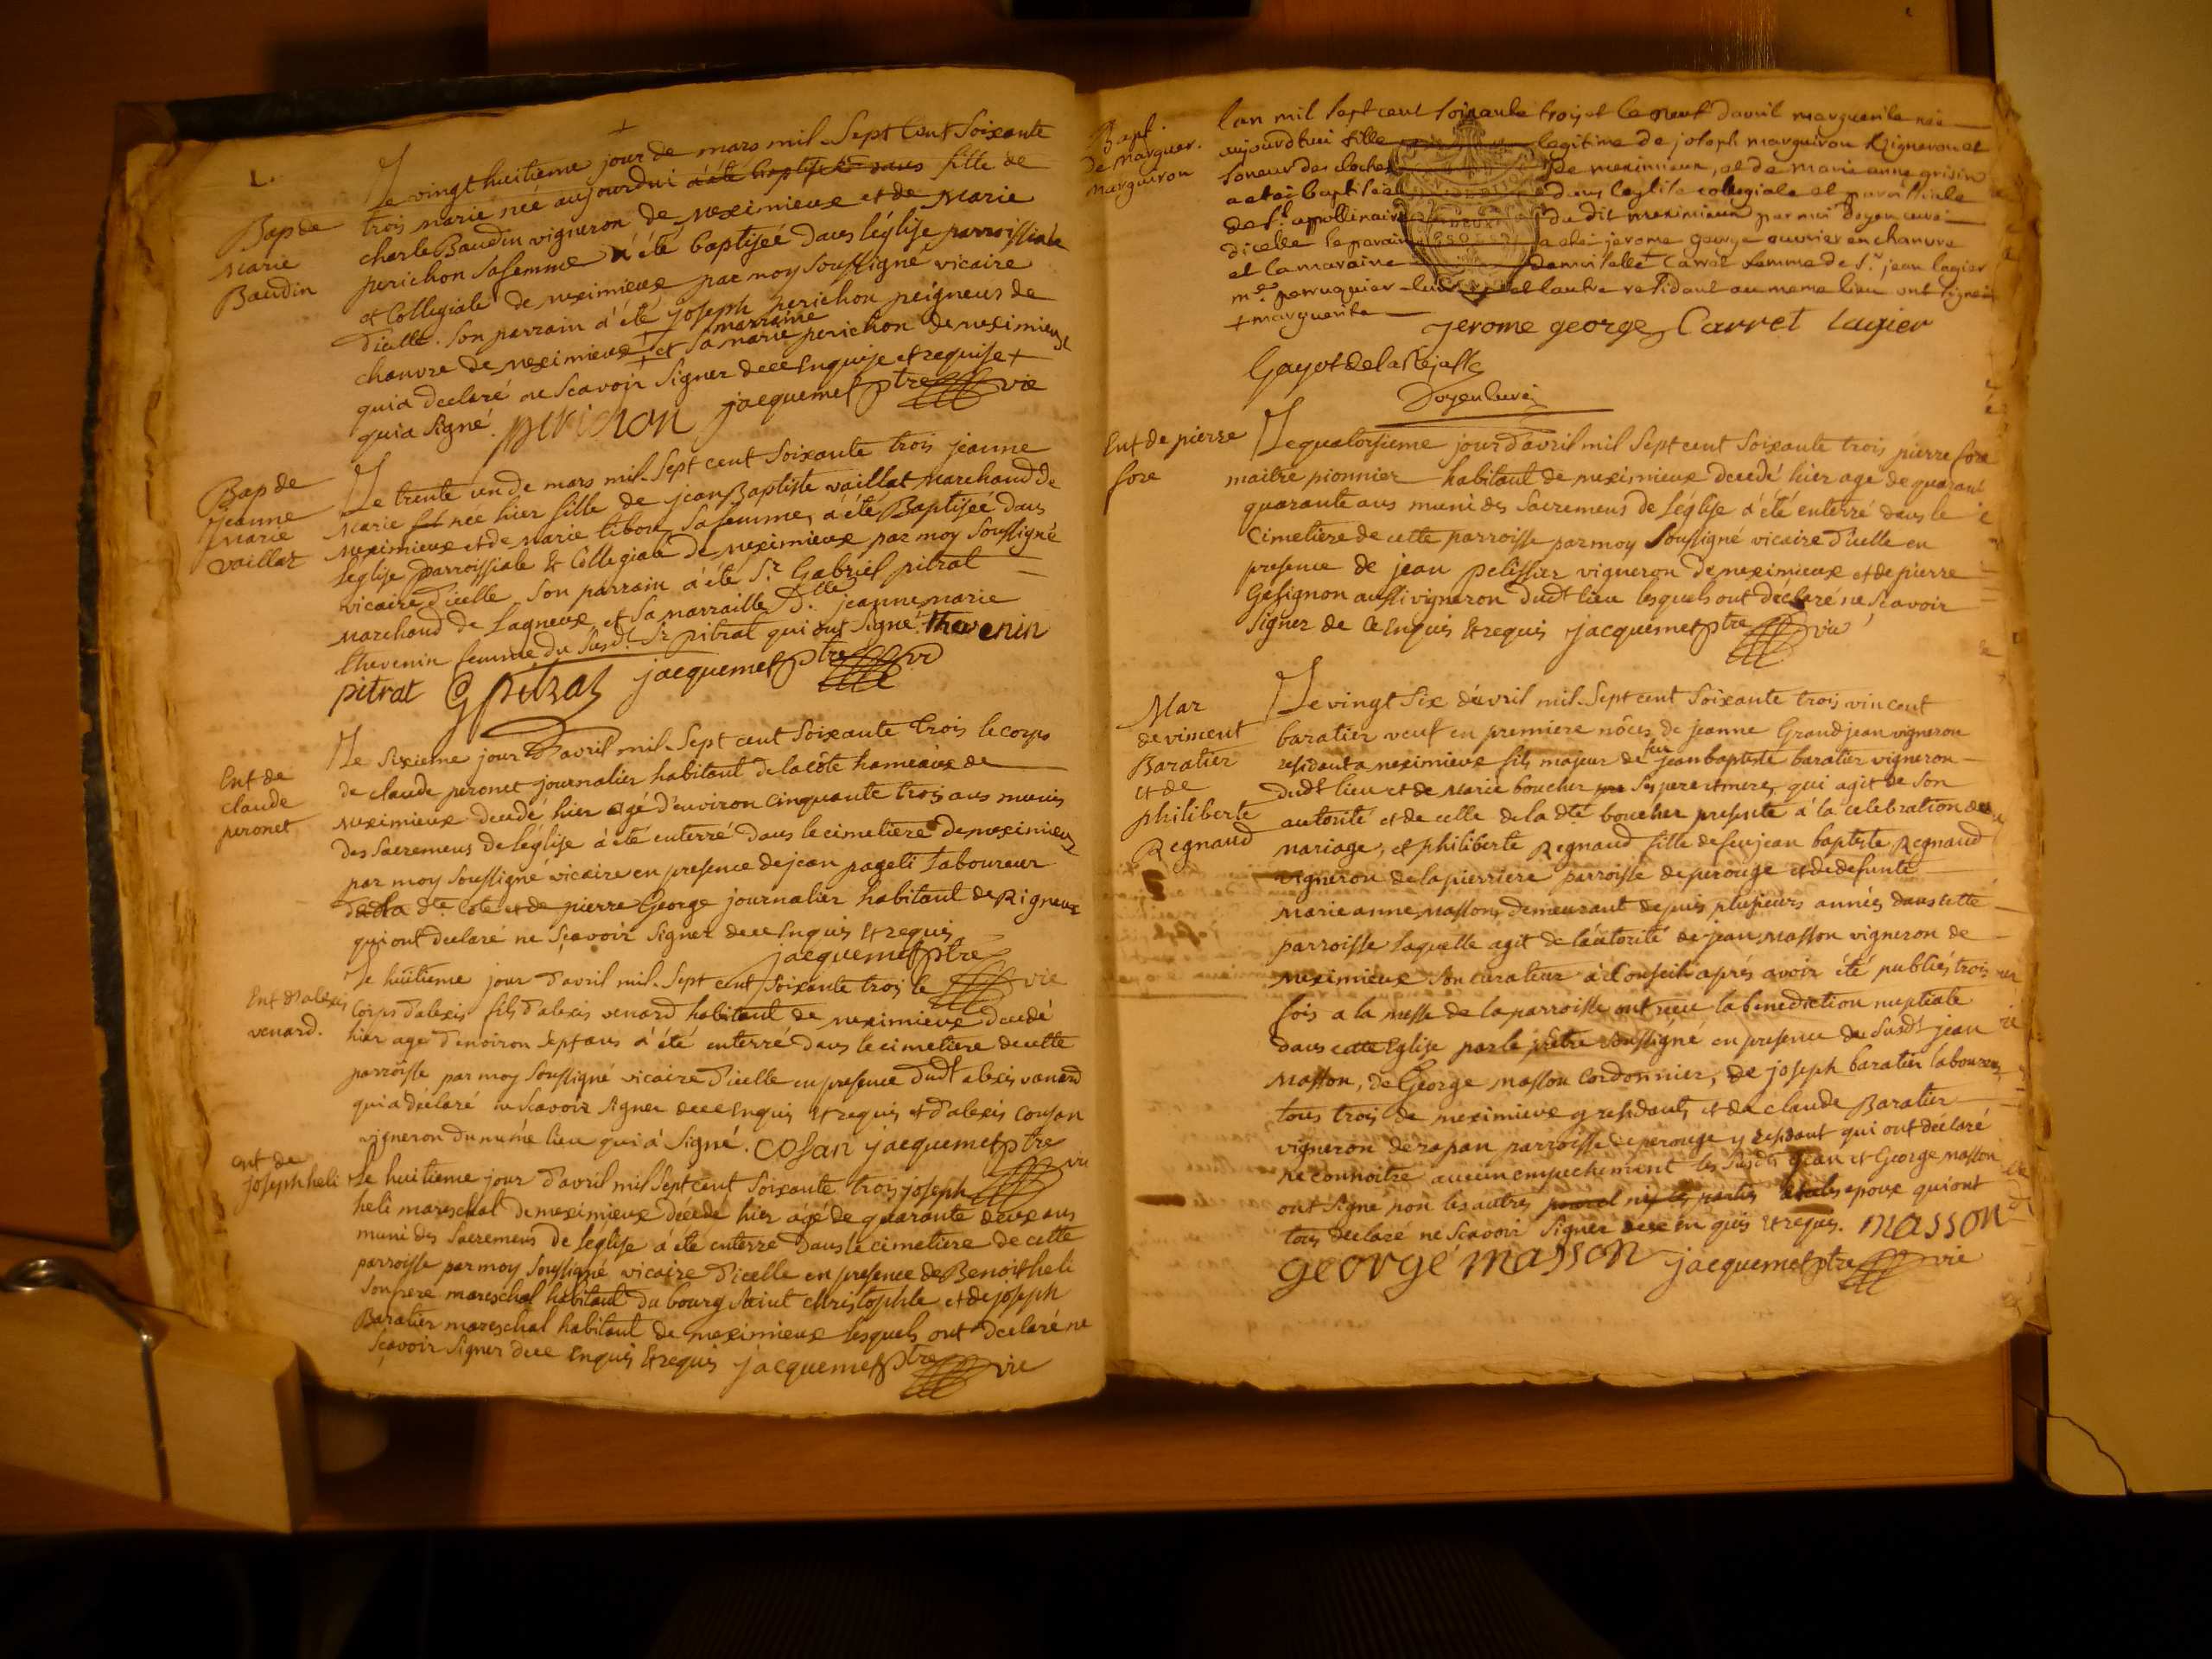 Bap de
Marie
Baudin
Le vingt huitieme jour de mars mil Sept Cent Soixante
trois marie née aujourdui a été baptisée dans fille de
charle Baudin vigneron de meximieux et de Marie
perichon Sa femme a été baptiseé dans léglise parroissiale
et Collegiale de meximieux par moy Soussigné vicaire
dicelle. Son parrain a été joseph perichon peigneur de
chanvre de meximieux + et Sa marraine marie perichon de meximieux
qui a declaré ne Scavoir Signer de ce Enquise et requise +
qui a Signé. perichon jacquemet ptre vic
Bap de
jeanne
Marie
vaillat
Le trente un de mars mil Sept cent Soixante trois jeanne
Marie née hier fille de jean Baptiste vaillat Marchand de
Meximieux et de Marie Sa femme, a été Baptiseé dans
l'église Parroissiale & Collegiale de meximieux par moy Soussigné
vicaire d'icelle Son parrain a été Sr. Gabriel pitrat
Marchand de Lagneux et Sa marraille Dlle. jeanne marie
thevenin femme du Susdt. Sr pitrat qui ont Signé. thevenin
pitrat G pitrat jacquemet ptre vic
Ent de
claude
peronet
Le Sixieme jour d'avril mil Sept cent Soixante Trois le corps
de claude peronet journalier habitant de la côte hameaux de
Meximieux decedé hier agé d'environ Cinquante trois ans munis
des Sacremens de l'église a été enterré dans le cimetiere de meximieux
par moy Soussigné vicaire en presence de jean pageti Laboureur
de la dte. Cote et de pierre George journalier habitant de Rigneux
qui ont declaré ne Sçavoir Signer de ce Enquis & requis
jacquemet ptre vic
Ent d'alexis
venard.
Le huitieme jour d'avril mil Sept cent Soixante trois le
Corps d'alexis fils d'alexis venard habitant de meximieux decedé
hier agé d'environ Sept ans a été enterré dans le cimetiere de cette
parroisse par moy Soussigné vicaire d'icelle en presence dudt alexis venard
qui a déclaré ne Scavoir Signer de ce Enquis & requis et d'alexis Cousan
vigneron du même lieu qui a Signé. Cosan jacquemet ptre vic
ent de
joseph heli
Le huitieme jour d'avril mil Sept Cent Soixante trois joseph
heli mareschal de meximieux decedé hier agé de quarante deux ans
muni des Sacremens de l'eglise a été enterré Dans le cimetiere de cette
parroisse par moy Soussigné vicaire d'icelle en presence de Benoit heli
Son pere mareschal habitant du bourg Saint Christophle et de joseph
Baratier mareschal habitant de meximieux lesquels ont declaré ne
Sçavoir Signer de ce Enquis & requis jacquemet ptre vic
Bapt.
de Marguer.
Marguiron
lan mil sept cent soixante trois et le neuf davril marguerite née
aujourdhui fille legitime de joseph marguiron Vigneron et
soneur des cloches de meximieux, et de marie anne grisin
a eté baptisée dans leglise collegiale et paroissiale
de St. appollinaire du dit meximieux par moi doyen curé
dicelle le parain a eté jerome george ouvrier en chanvre
et la maraine demoiselle Carret femme de Sr. jean lagier
me perruquier lun et lautre residant au meme lieu ont signé
+ marguerite
jerome george Carret Lagier
Gayot de la
Doyen Curé
Ent de pierre
fore
Le quatorsieme jour d'avril mil Sept cent Soixante trois pierre fore
maitre pionnier habitant de meximieux decedé hier agé de quarant
quarante ans muni des Sacremens de l'église a été enterré dans le
Cimetiere de cette parroisse par moy Soussigné vicaire d'icelle en
presence de jean pelissier vigneron de meximieux et de pierre
Gesignon aussi vigneron dudt lieu lesquels ont déclaré ne Scavoir
Signer de ce Enquis & requis jacquemet ptre vic
Mar
de vincent
Baratier
et de
philiberte
Regnaud
Le vingt Six d'avril mil Sept cent Soixante trois vincent
baratier veuf en premiere nôces de jeanne Grandjean vigneron
residant a meximieux fils majeur de feu jean baptiste baratier vigneron
dudt lieu et de Marie boucher Ses pere et mere, qui agit de Son
autorité et de celle de la dte boucher presente a la celebration du
Mariage, et philiberte Regnaud fille de feu jean baptiste Regnaud
vigneron de la pierriere parroisse de perouge et de defunte
Marie anne Masson demeurant depuis plusieurs années dans cette
parroisse Laquelle agit de l'autorité de jean Masson vigneron de
Meximieux Son curateur a Conseil aprés avoir été publiés trois
fois a la messe de la parroisse ont recu la benediction nuptiale
dans cette Eglise par le prêtre Soussigné en presence du Susdt jean
Masson, de George Masson Cordonnier, de joseph baratier laboureur
tous trois de meximieux y residants et de claude Baratier
vigneron de rapan parroisse de perouge y residant qui ont déclaré
ne connoitre aucun empechement les Susdts jean et George Masson
ont Signé non les autres ni les parties epoux qui ont
tous declaré ne Scavoir Signer de ce en quis & requis. MASSON
george masson jacquemet ptre vic